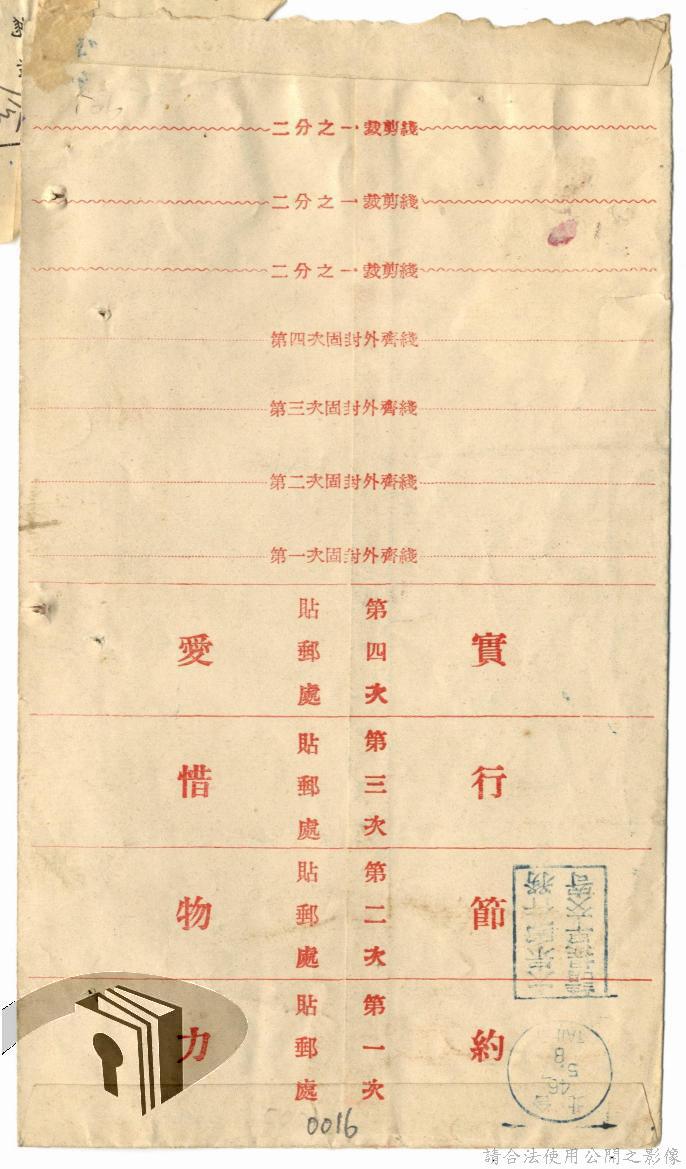 二分之一裁剪綫
二分之一裁剪綫
二分之一裁剪綫
第四次固封外齊綫
第三次固封外齊綫
第二次固封外齊綫
第一次固封外齊綫
實行節約
愛惜物力
第四次
貼郵處
第三次
貼郵處
第二次
貼郵處
第一次
貼郵處
0016
請合法使用公開之影像